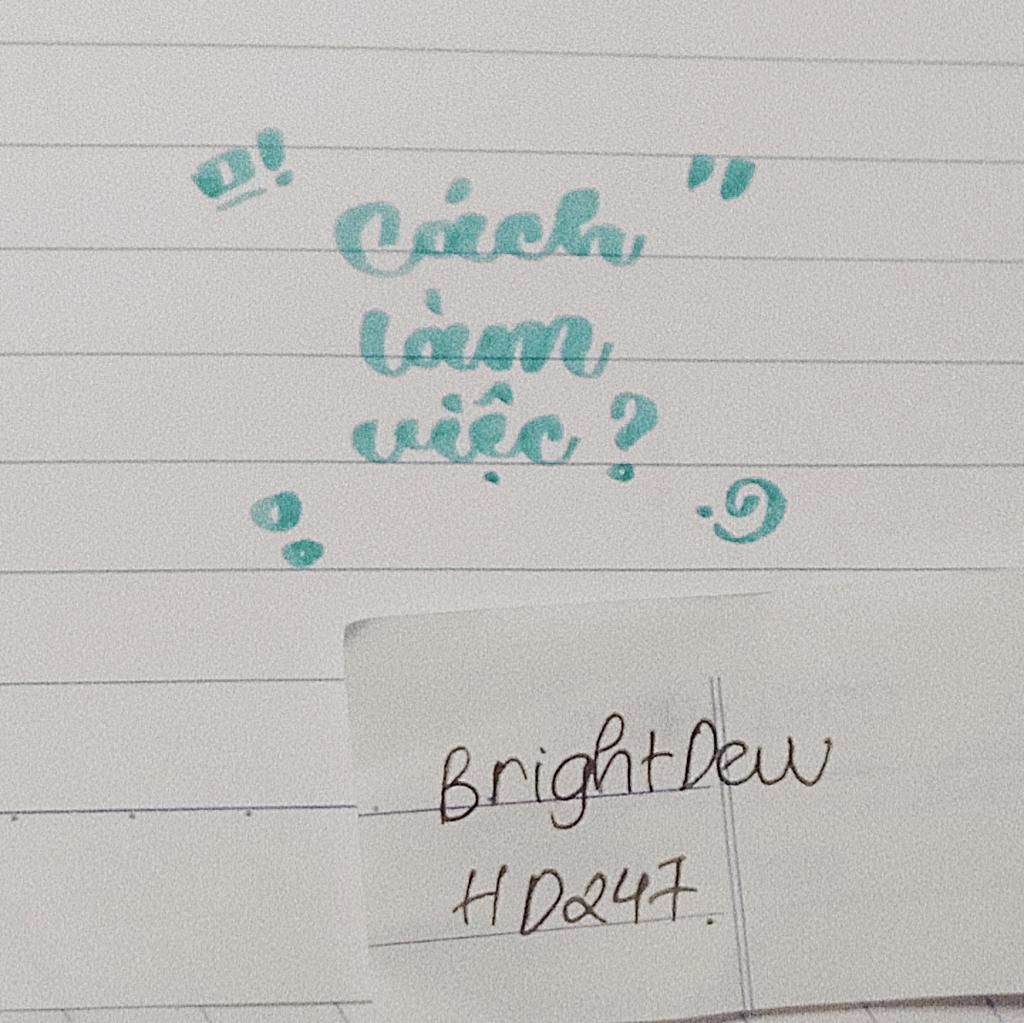 Cách
làm
việc?
BrightDew
HD247.